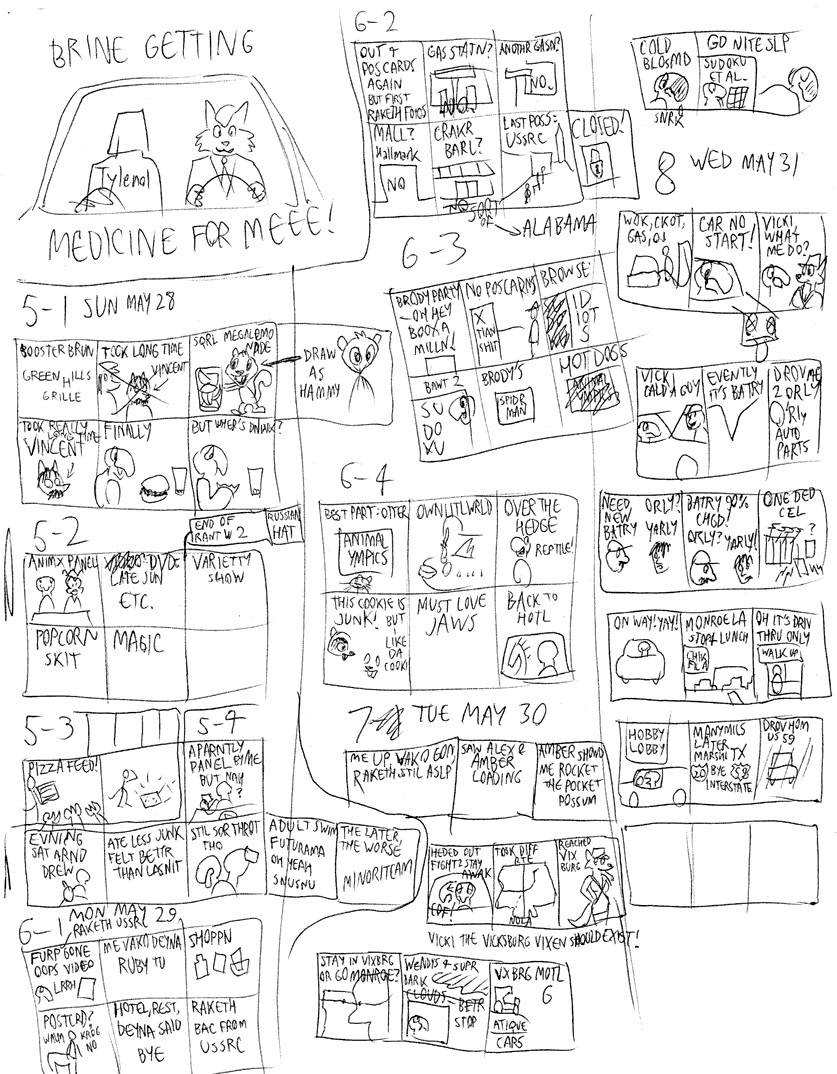 BRINE GETTING
Tylenol
MEDICINE FOR MEEE!
5-1 SUN MAY 28
BOOSTER BRUN
GREEN HILLS
GRILLE
TOOK LONG TIME
VINCENT
SQRL MEGALEMO
NADE
DRAW
AS
HAMMY
TOOK REALLY
LONG TIME
VINCENT
FINALLY
BUT WHER'S DNIWK?
5-2
END OF
RANT W 2
RUSSIAN
HAT
ANIMX PANEL
DVDS
LATE JUN
ETC.
VARIETTY
SHOW
POPCORN
SKIT
MAGIC
5-3
5-4
PIZZA FEED!
APARNTLY
PANEL BY ME
BUT NAH
?
EVNING
SAT ARND
DREW
ATE LESS JUNK
FELT BETTR
THAN LASNIT
STIL SOR THROT
THO
ADULT SWIM
FUTURAMA
OH YEAH
SNUSNU
THE LATER,
THE WORSE
MINORITEAM
6-1 MON MAY 29
RAKETH USSRC
FURP GONE
OOPS VIDEO
LRRH
ME VAKO DEYNA
RUBY TU
SHOPPN
POSTCRD?
WMM
KROG
NO
HOTEL, REST,
DEYNA SAID
BYE
RAKETH
BAC FROM
USSRC
6-2
OUT 4
POSCARDS
AGAIN
BUT FIRST
RAKETH FOTOS
GAS STATN?
NO
ANOTHR GASN?
NO.
MALL?
Hallmark
NO
CRAKR
BARL?
NO
SORT
OF
LAST POSS:
USSRC
CLOSED!
ALABAMA
6-3
BRODY PARTY
OH HEY
BOOX A
MILLN!
NO POSCARDS
X
TIAN
SHIT
BROWSE
ID
IOT
S
BAWT 2
SU
DO
XU
BRODY'S
SPIDR
MAN
HOT DOGS
6-4
BEST PART: OTTER
ANIMAL
YMPICS
OWN LITL WRLD
OVER THE
HEDGE
REPTILE!
THIS COOKIE IS
JUNK! BUT
LIKE
DA
COOKI
MUST LOVE
JAWS
BACK TO
HOTL
7- TUE MAY 30
ME UP VAKO GON
RAKETH STIL ASLP
SAW ALEX &
AMBER
LOADING
AMBER SHOWD
ME ROCKET
THE POCKET
POSSUM
HEDED OUT
FIGHT 2 STAY
AWAK
TOOK DIFF
RTE
NOLA
REACHED
VIX
BURG
VICKI THE VICKSBURG VIXEN SHOULD EXIST!
STAY IN VIXBRG
OR GO MONROE?
WENDYS 4 SUPR
DARK
CLOUDS
BETR
STOP
VXBRG MOTL
6
ATIQUE
CARS
COLD
BLOSMD
SNRK
GO NITE SLP
SUDOKU
ET AL.
8 WED MAY 31
WOK, CKOT,
GAS, OJ
CAR NO
START!
VICKI,
WHAT
ME DO?
VICK
CALD A GUY
EVENTLY
IT'S BATRY
DROV ME
2 ORLY
O'Rly
AUTO
PARTS
NEED
NEW
BATRY
ORLY?
YARLY
BATRY 90%
CHGD!
ORLY?
YARLY!
ONE DED
CEL
?
ON WAY! YAY!
MONROE LA
STOP 4 LUNCH
CHIK
FLA
OH IT'S DRIV
THRU ONLY
WALK UP
HOBBY
LOBBY
MANY MILS
LATER
MARSHL TX
20 BYE 59
INTERSTATE
DROV HOM
US 59